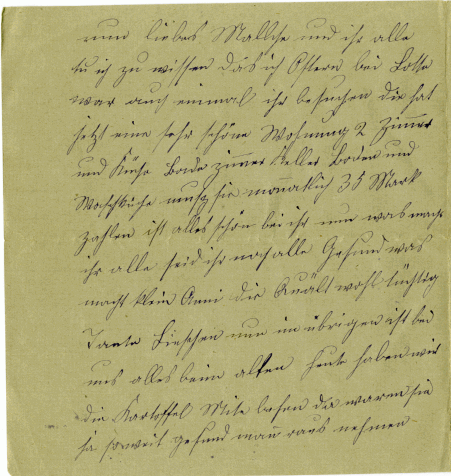 nun liebes Mallche und ihr alle
tu ich zu wissen das ich Ostern bei Lotte
war auch einmal ihr besuchen die hat
jetzt eine sehr schöne Wohnung 2 Zimmer
und Küche Bade zimmer Keller Boden und
Waschküche musz sie monatlich 35 Mark
zahlen ist alles schön bei ihr nun was macht
ihr alle seid ihr noch alle Gesund was
macht klein Anni die Quält wohl tüchtig
Tante Lieschen nun im übrigen ist bei
uns alles beim alten heute haben wir
die Kartoffel Mite da waren sie
ja soweit gesund man raus nehmen